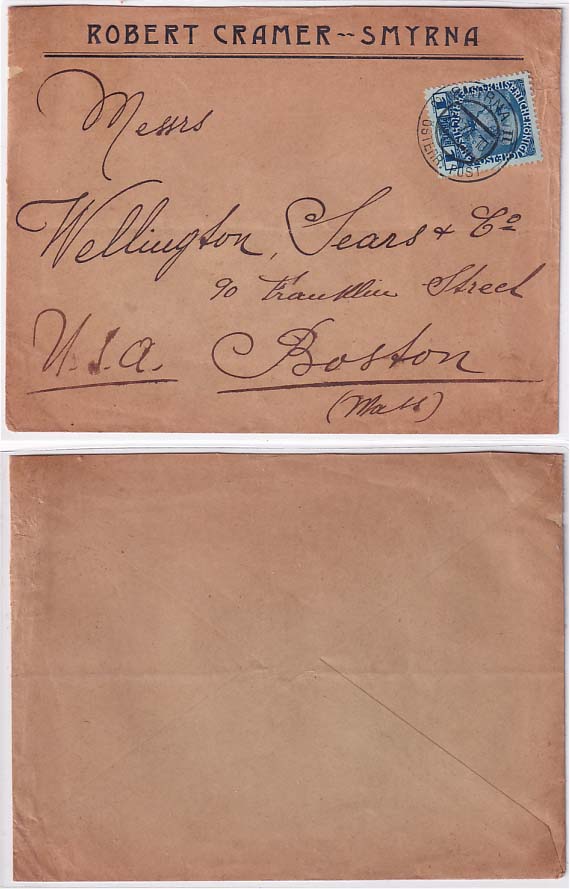 ROBERT CRAMER--SMYRNA
SMYRNA II
ÖSTERR. POST
1
Messrs
Wellington, Sears & Co
90 Franklin Street
U.S.A. Boston
(Mass)